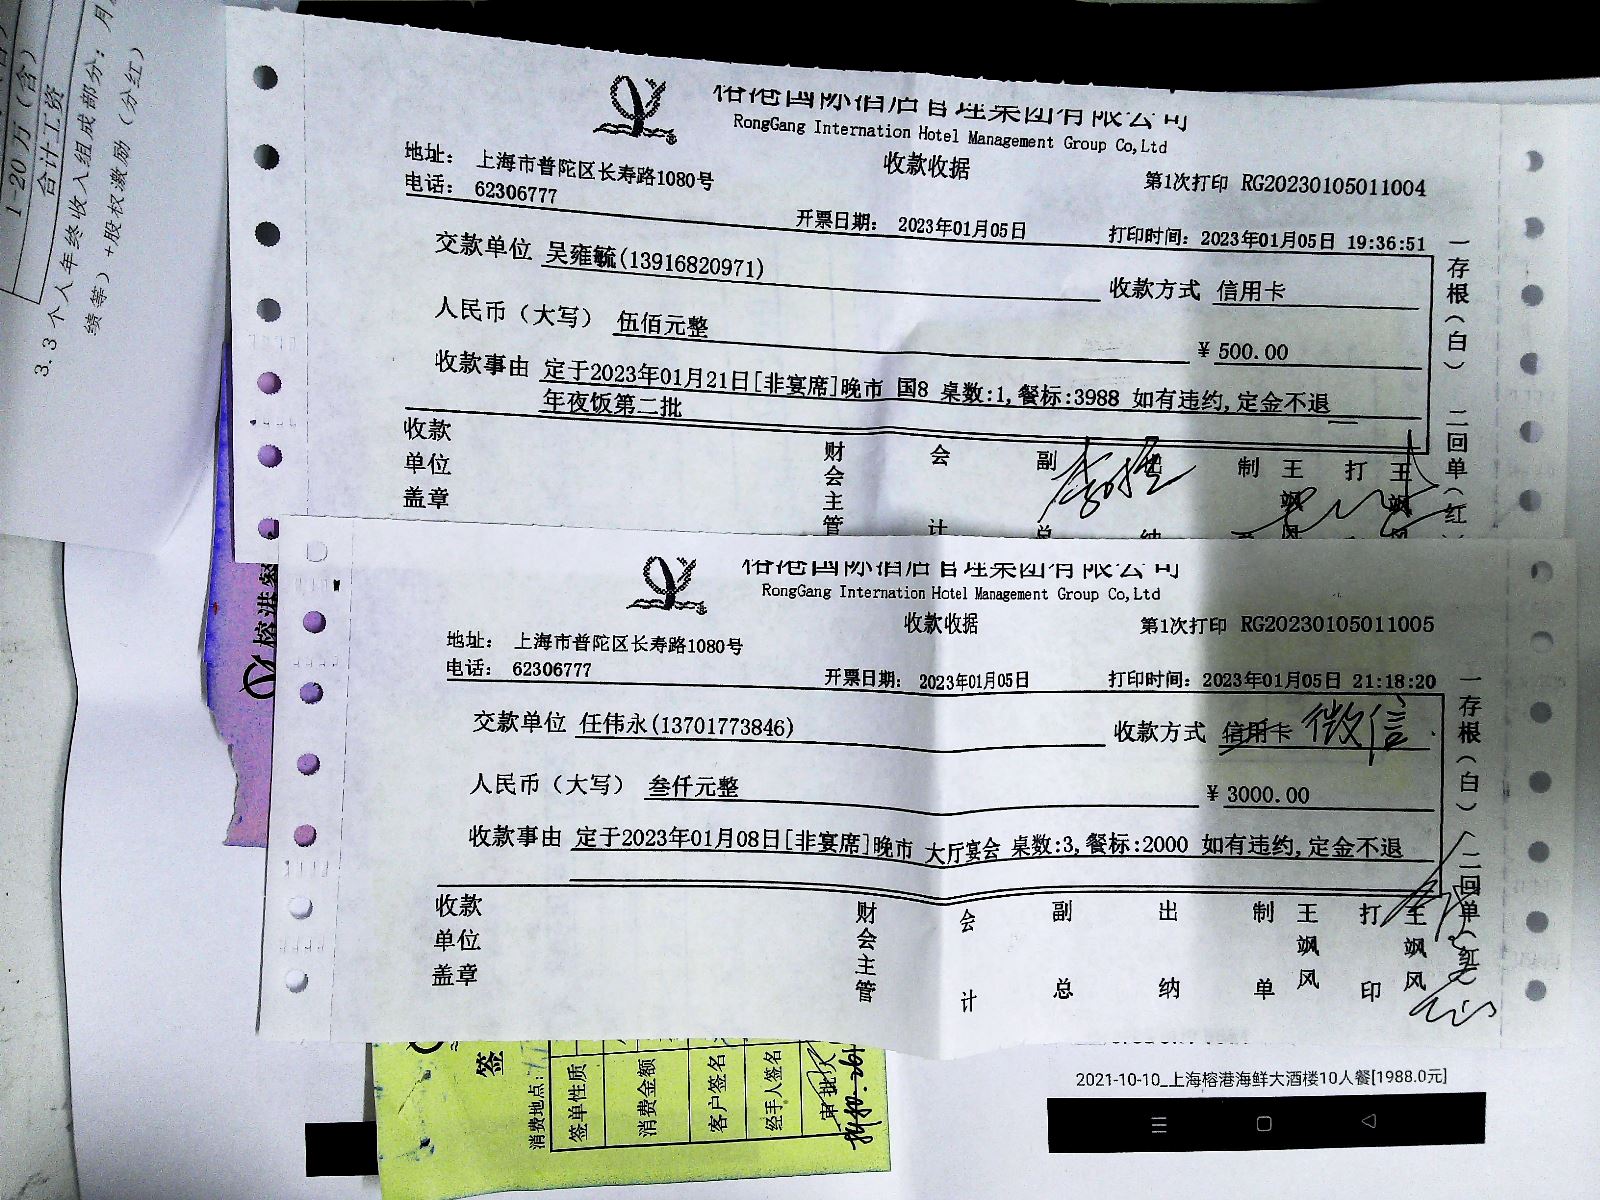 1-20万(含)
合计工资
3.3 个人年终收入组成部分：月
绩等）+股权激励（分红）
榕港国际酒店管理集团有限公司
RongGang Internation Hotel Management Group Co,Ltd
收款收据
地址： 上海市普陀区长寿路1080号
第1次打印 RG20230105011004
电话： 62306777
开票日期： 2023年01月05日
打印时间：2023年01月05日 19:36:51
交款单位 吴雍毓(13916820971)
收款方式 信用卡
人民币（大写） 伍佰元整
¥ 500.00
收款事由 定于2023年01月21日[非宴席]晚市 国8 桌数:1,餐标:3988 如有违约,定金不退
年夜饭第二批
收款单位盖章
财会主管
会计
副总
出纳
制 王飒风
打 王飒风
一存根（白） 二回单（红
榕港国际酒店管理集团有限公司
RongGang Internation Hotel Management Group Co,Ltd
收款收据
第1次打印 RG20230105011005
地址： 上海市普陀区长寿路1080号
电话： 62306777
开票日期： 2023年01月05日
打印时间：2023年01月05日 21:18:20
交款单位 任伟永(13701773846)
收款方式 信用卡 微信
人民币（大写） 叁仟元整
¥ 3000.00
收款事由 定于2023年01月08日[非宴席]晚市 大厅宴会 桌数:3,餐标:2000 如有违约,定金不退
收款单位盖章
财会主管
会计
副总
出纳
制单 王飒风
打印 王飒风
一存根（白） 二回单（红
签
消费地点:
签单性质
消费金额
客户签名
经手人签名
审批
2021-10-10_上海榕港海鲜大酒楼10人餐[1988.0元]